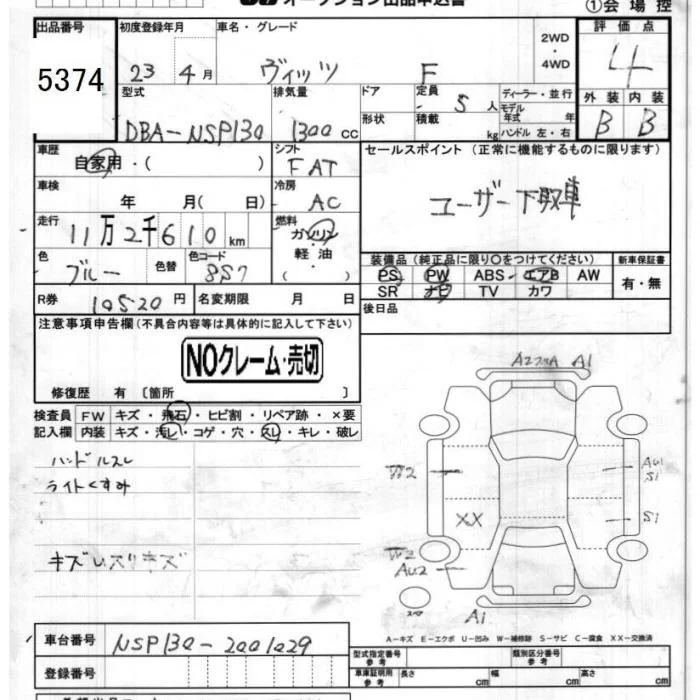 オークション出品申込書
①会場控
出品番号 初度登録年月 車名・グレード 評価点
5374 23年 4月 ヴィッツ F 2WD・4WD 4
型式 排気量 ドア 定員 ディーラー・並行 外装 内装
DBA-NSP130 1300cc 5人 モデル年式 年 B B
形状 積載 kg ハンドル 左・右
車歴 シフト セールスポイント (正常に機能するものに限ります)
自家用・( ) FAT
車検 冷房 ユーザー下取車
年 月( 日) AC
走行 燃料
11万2千610km ガソリン
軽油
・( )
色 色替 色コード 装備品(純正品に限り〇をつけてください) 新車保証書
ブルー 8S7 PS PW ABS エアB AW 有・無
SR ナビ TV カワ
R券 10520円 名変期限 月 日 後日品
注意事項申告欄(不具合内容等は具体的に記入して下さい)
NOクレーム・売切
修復歴 有 〔箇所 〕
検査員 FW キズ・飛石・ヒビ割・リペア跡・×要
記入欄 内装 キズ・汚レ・コゲ・穴・スレ・キレ・破レ
A2 A1
ハンドルスレ
ライトくすみ
W2 AU1
S1
XX S1
キズ スリキズ
W2
AU2
A1
A-キズ E-エクボ U-凹み W-補修跡 S-サビ C-腐食 XX-交換済
車台番号 NSP130-2001029
型式指定番号 参考 類別区分番号 参考
登録番号 車庫証明用 参考 長さ cm 幅 cm 高さ cm